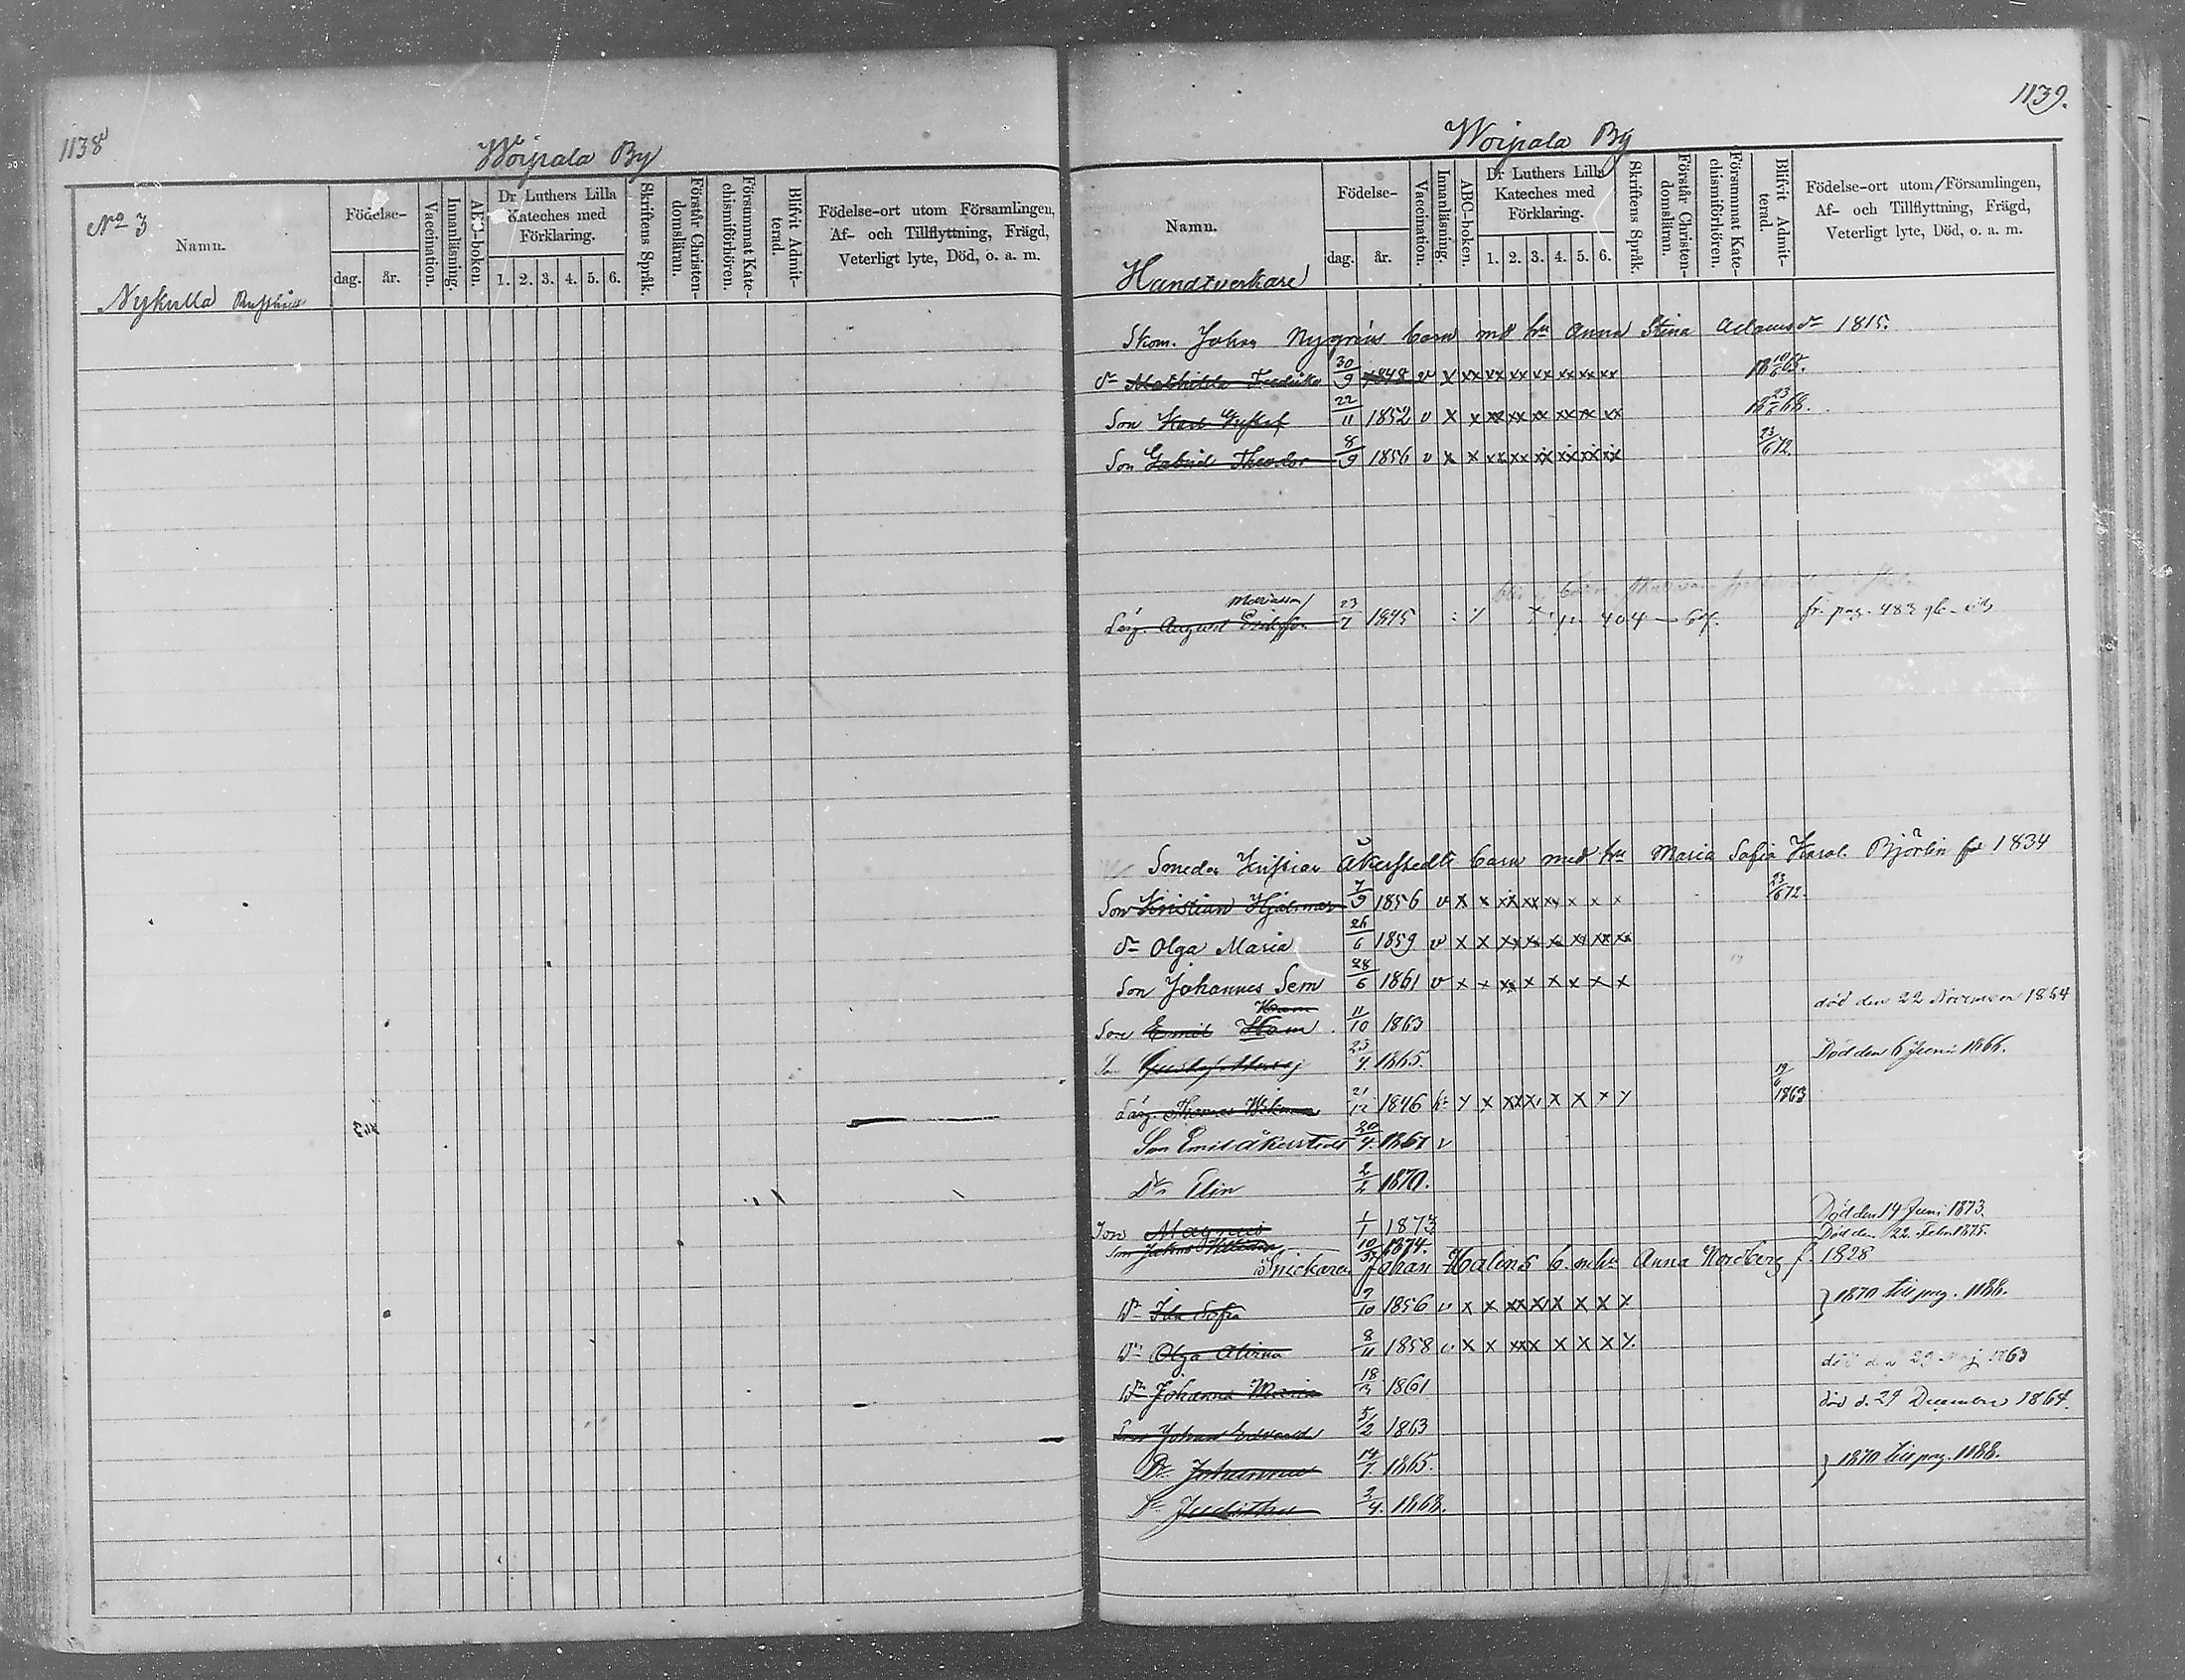 1138
Woipala By
No 3
Namn.
Födelse-
dag. år.
Vaccination.
Innanläsning.
ABC-boken.
Dr Luthers Lilla Kateches med Förklaring.
1. 2. 3. 4. 5. 6.
Skriftens Språk.
Förstår Christendomsläran.
Försummat Katechismiförhören.
Blifvit Admitterad.
Födelse-ort utom Församlingen,
Af- och Tillflyttning, Frägd,
Veterligt lyte, Död, o. a. m.
Nykulla
1139.
Woipala By
Namn.
Födelse-
dag. år.
Vaccination.
Innanläsning.
ABC-boken.
Dr Luthers Lilla Kateches med Förklaring.
1. 2. 3. 4. 5. 6.
Skriftens Språk.
Förstår Christendomsläran.
Försummat Katechismiförhören.
Blifvit Admitterad.
Födelse-ort utom Församlingen,
Af- och Tillflyttning, Frägd,
Veterligt lyte, Död, o. a. m.
Handtverkare
Skom. Johan Nygréns barn med hu Anna Stina Adamsdr 1815.
dr Mathilda Fredrika 30/9 1848 v x xx xx xx xx xx xx xx
Son Karl Gustaf 22/11 1852 v x x xx xx xx xx xx xx 18 23/6 68.
Son Gabriel Theodor 8/9 1856 v x x xx xx xx xx xx xx 23/6 72.
Lärg. August Eriksson 23/7 1845 404 fr. pag. 483
Smeden Kristian Åkerstedts barn med hu Maria Sofia Karol. Björlin 1834
Son Kristian Hjalmar 7/9 1856 v x x xx xx xx x x x 23/6 72.
dr Olga Maria 26/6 1859 v x x xx xx xx xx xx xx
Son Johannes Sem 28/6 1861 v x x xx x x x x x
Son Emil Ham 11/10 1863 död den 22 November 1864
Gustaf 23/4. 1865. Död den 6 Juni 1866.
Lärg. Thomas Wikman 21/12 1846 x x xx xx x x x x 19/6 1863
Son Emil Åkerstedt 20/4. 1867 v
Dr Elin 2/2 1870.
Son Magnus 1/1 1873 Död den 14 Juni 1873.
Son Johan 1874. Död den 22 Febr. 1875.
Snickaren Johan Halins b. m. hu Anna Nordberg f. 1828
Dr Ida Sofia 7/10 1856 v x x xx xx x x x x } 1870 till pag. 1188.
Dr Olga Alina 8/11 1858 v x x xx x x x x x
Dr Johanna Maria 18/3 1861 död den 29 Maj 1863
Son Johan Edvard 5/2 1863 död d. 29 December 1864.
Dr Johanna 14/7. 1865. } 1870 till pag. 1188.
Dr Juditha 2/4. 1868.